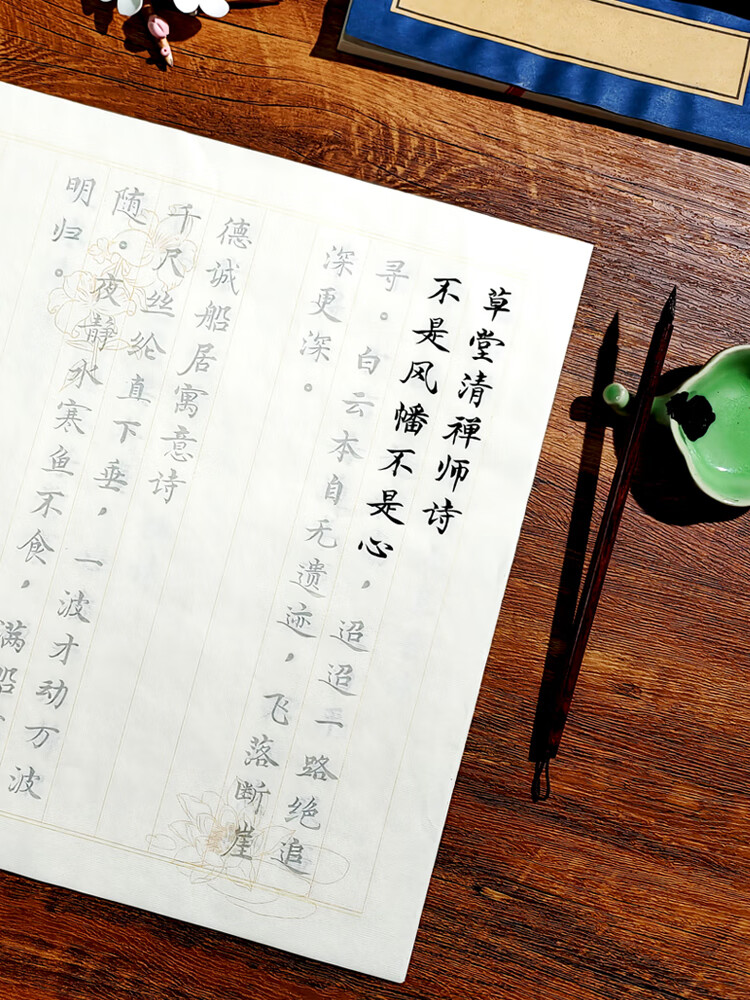 草堂清禅师诗
不是风幡不是心，迢迢一路绝追
寻。白云本自无遗迹，飞落断崖
深更深。
德诚船居寓意诗
千尺丝纶直下垂，一波才动万波
随。夜静水寒鱼不食，满船
明归。